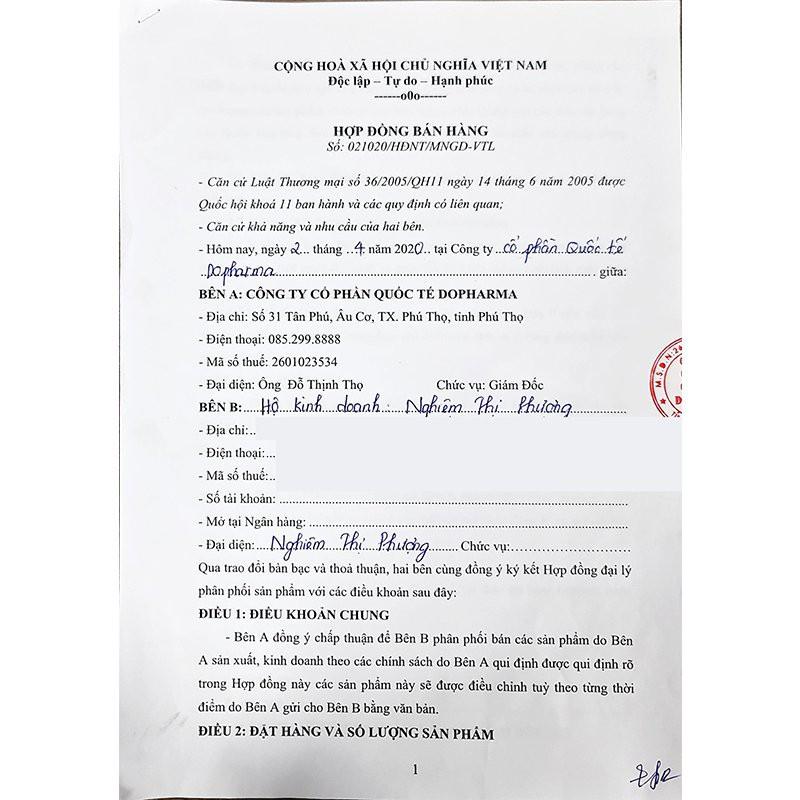 CỘNG HOÀ XÃ HỘI CHỦ NGHĨA VIỆT NAM
Độc lập – Tự do – Hạnh phúc
------o0o------
HỢP ĐỒNG BÁN HÀNG
Số: 021020/HĐNT/MNGD-VTL
- Căn cứ Luật Thương mại số 36/2005/QH11 ngày 14 tháng 6 năm 2005 được
Quốc hội khoá 11 ban hành và các quy định có liên quan;
- Căn cứ khả năng và nhu cầu của hai bên.
- Hôm nay, ngày 2... tháng ..4. năm 2020.. tại Công ty ..cổ phần Quốc tế
..Dopharma.......................................................... . giữa:
BÊN A: CÔNG TY CỔ PHẦN QUỐC TẾ DOPHARMA
- Địa chỉ: Số 31 Tân Phú, Âu Cơ, TX. Phú Thọ, tỉnh Phú Thọ
- Điện thoại: 085.299.8888
- Mã số thuế: 2601023534
- Đại diện: Ông Đỗ Thịnh Thọ Chức vụ: Giám Đốc
BÊN B:....Hộ kinh doanh: Nghiêm Thị Phượng..........
- Địa chỉ:..
- Điện thoại:...
- Mã số thuế:..
- Số tài khoản: ................................................................
- Mở tại Ngân hàng: ................................................................
- Đại diện:....Nghiêm Thị Phượng........ Chức vụ:........................
Qua trao đổi bàn bạc và thoả thuận, hai bên cùng đồng ý ký kết Hợp đồng đại lý
phân phối sản phẩm với các điều khoản sau đây:
ĐIỀU 1: ĐIỀU KHOẢN CHUNG
- Bên A đồng ý chấp thuận để Bên B phân phối bán các sản phẩm do Bên
A sản xuất, kinh doanh theo các chính sách do Bên A qui định được qui định rõ
trong Hợp đồng này các sản phẩm này sẽ được điều chỉnh tuỳ theo từng thời
điểm do Bên A gửi cho Bên B bằng văn bản.
ĐIỀU 2: ĐẶT HÀNG VÀ SỐ LƯỢNG SẢN PHẨM
1